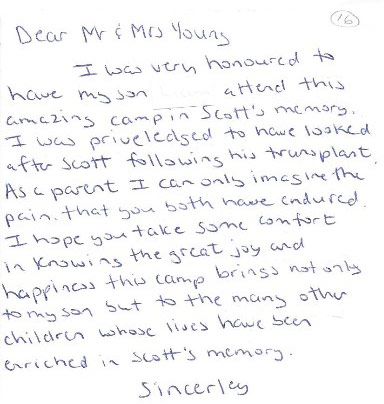 16
Dear Mr & Mrs Young
I was very honoured to
have my son attend this
amazing camp in Scott's memory.
I was priveledged to have looked
after Scott following his transplant.
As a parent I can only imagine the
pain. that you both have endured.
I hope you take some comfort
in knowing the great joy and
happiness this camp brings not only
to my son but to the many other
children whose lives have been
enriched in Scott's memory.
Sincerley